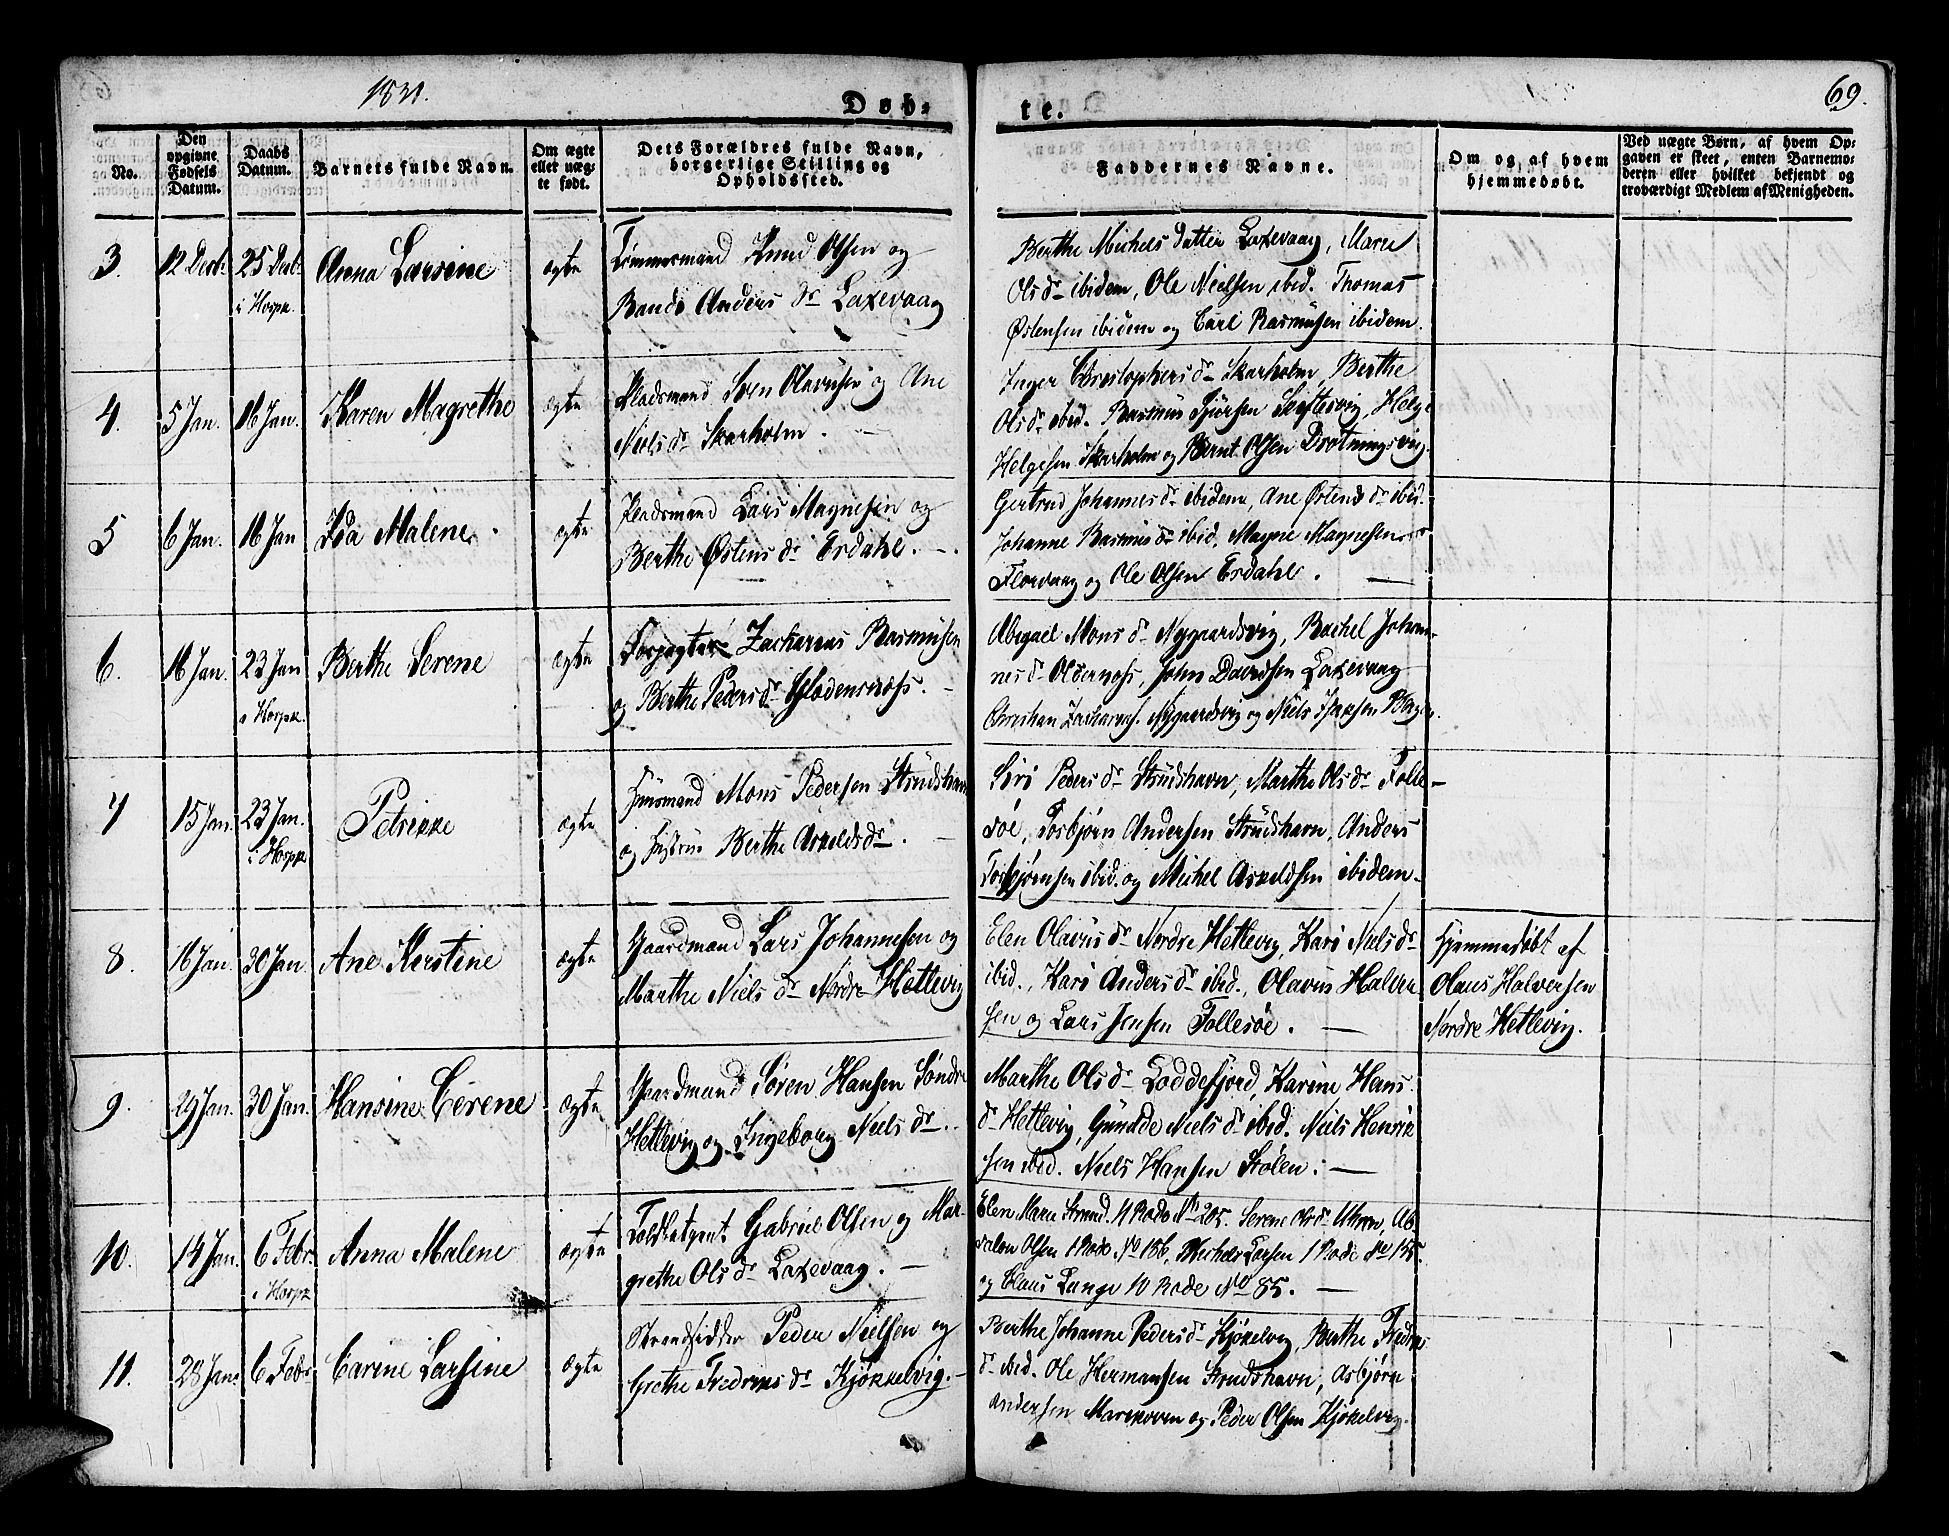 1831.
Døb-
te.
69.
No.
Den opgivne Fødsels Datum.
Daabs Datum.
Barnets fulde Navn.
Om ægte eller uægte født.
Dets Forældres fulde Navn, borgerlige Stilling og Opholdssted.
Faddernes Navne.
Om og af hvem hjemmedøbt.
Ved uægte Børn, af hvem Opgaven er skeet, enten Barnemoderen eller hvilket bekjendt og troværdigt Medlem af Menigheden.
3. 12 Decb: 25 Decb: i Horpk. Anna Larsine ægte
Tømmermand Knud Olsen og
Anders Dr Laxevaag
Berthe Michels datter Laxevaag, Marie
Ols dr ibidem, Ole Nielsen ibid. Thomas
Østensen ibidem og Carl Rasmusen ibidem.
4. 5 Jan. 16 Jan. Karen Magrethe ægte
Pladsmand Søren Olavusen og Ane
Niels dr Skarholm.
Inger Christophers dr Skarholm, Berthe
Ols dr ibid. Rasmus Sjursen Helge
Helgesen Skarholm og Bernt Olsen Drotningsvig.
5 6 Jan. 16 Jan Ida Malene. ægte
Pladsmand Lars Magnesen og
Berthe Østens dr Erdahl.
Gertrud Johannes dr ibidem, Ane Østens dr ibid.
Johanne Rasmus dr ibid, Magne Magnesen
Florvaag og Ole Olsen Erdahl.
6. 16 Jan. 23 Jan i Horpk. Berthe Serene ægte
Forpagter Zacharias Rasmusen
og Berthe Peders dr
Abigael Mons dr Nygaardsvig, Rachel Johan-
nes dr Oldernæss, John Davidsen Laxevaag
Christian Nygaardsvig og Niels
7 15 Jan. 23 Jan. i Horpk Petrikke ægte
Huusmand Mons Pedersen Strudshavn
og Hustrue Berthe Askelds dr.
Siri Peders dr Strudshavn, Marthe Ols dr Folle-
søe, Torbjørn Andersen Strudshavn, Anders
Torbjørnsen ibid. og Michel Askeldsen ibidem.
8. 16 Jan. 30 Jan. Ane Kirstine ægte
Gaardmand Lars Johannesen og
Marthe Niels dr Nordre Hetlevig
Elen Olavus dr Nordre Hetlevig, Kari Niels dr
ibid., Kari Anders dr ibid., Olavus Halver-
sen og Lars Jensen Follesøe.
Hjemmedøbt af
Olaus Halversen
Nordre Hetlevig.
9. 29 Jan. 30 Jan. Hansine Cerene ægte
Gaardmand Søren Hansen Søndre
Hetlevig og Ingeborg Niels dr.
Marthe Ols dr Loddefjord, Karine Hans
dr Hetlevig, Niels dr ibid. Niels Henrik
sen ibid. Niels Hansen Stølen.
10. 14 Jan. 6 Febr. i Horpk Anna Malene ægte
Toldbetjent Gabriel Olsen og Mar-
grethe Ols dr Laxevaag.
Elen Marie Strand. 11 Rode No 205. Serene Ols dr Ab-
salon Olsen 1 Rode No 156, Michel Larsen 1 Rode No
og Claus Lange 10 Rode No 85.
11. 28 Jan. 6 Febr Carine Larsine ægte
Strandsidder Peder Nielsen og
Grethe Fredriks dr Kjøkkelvig.
Berthe Johanne Peders dr Kjøkelvig, Berthe Fredriks
dr ibid. Ole Hermansen Strudshavn, Asbjørn
Andersen og Peder Olsen Kjøkelvig.